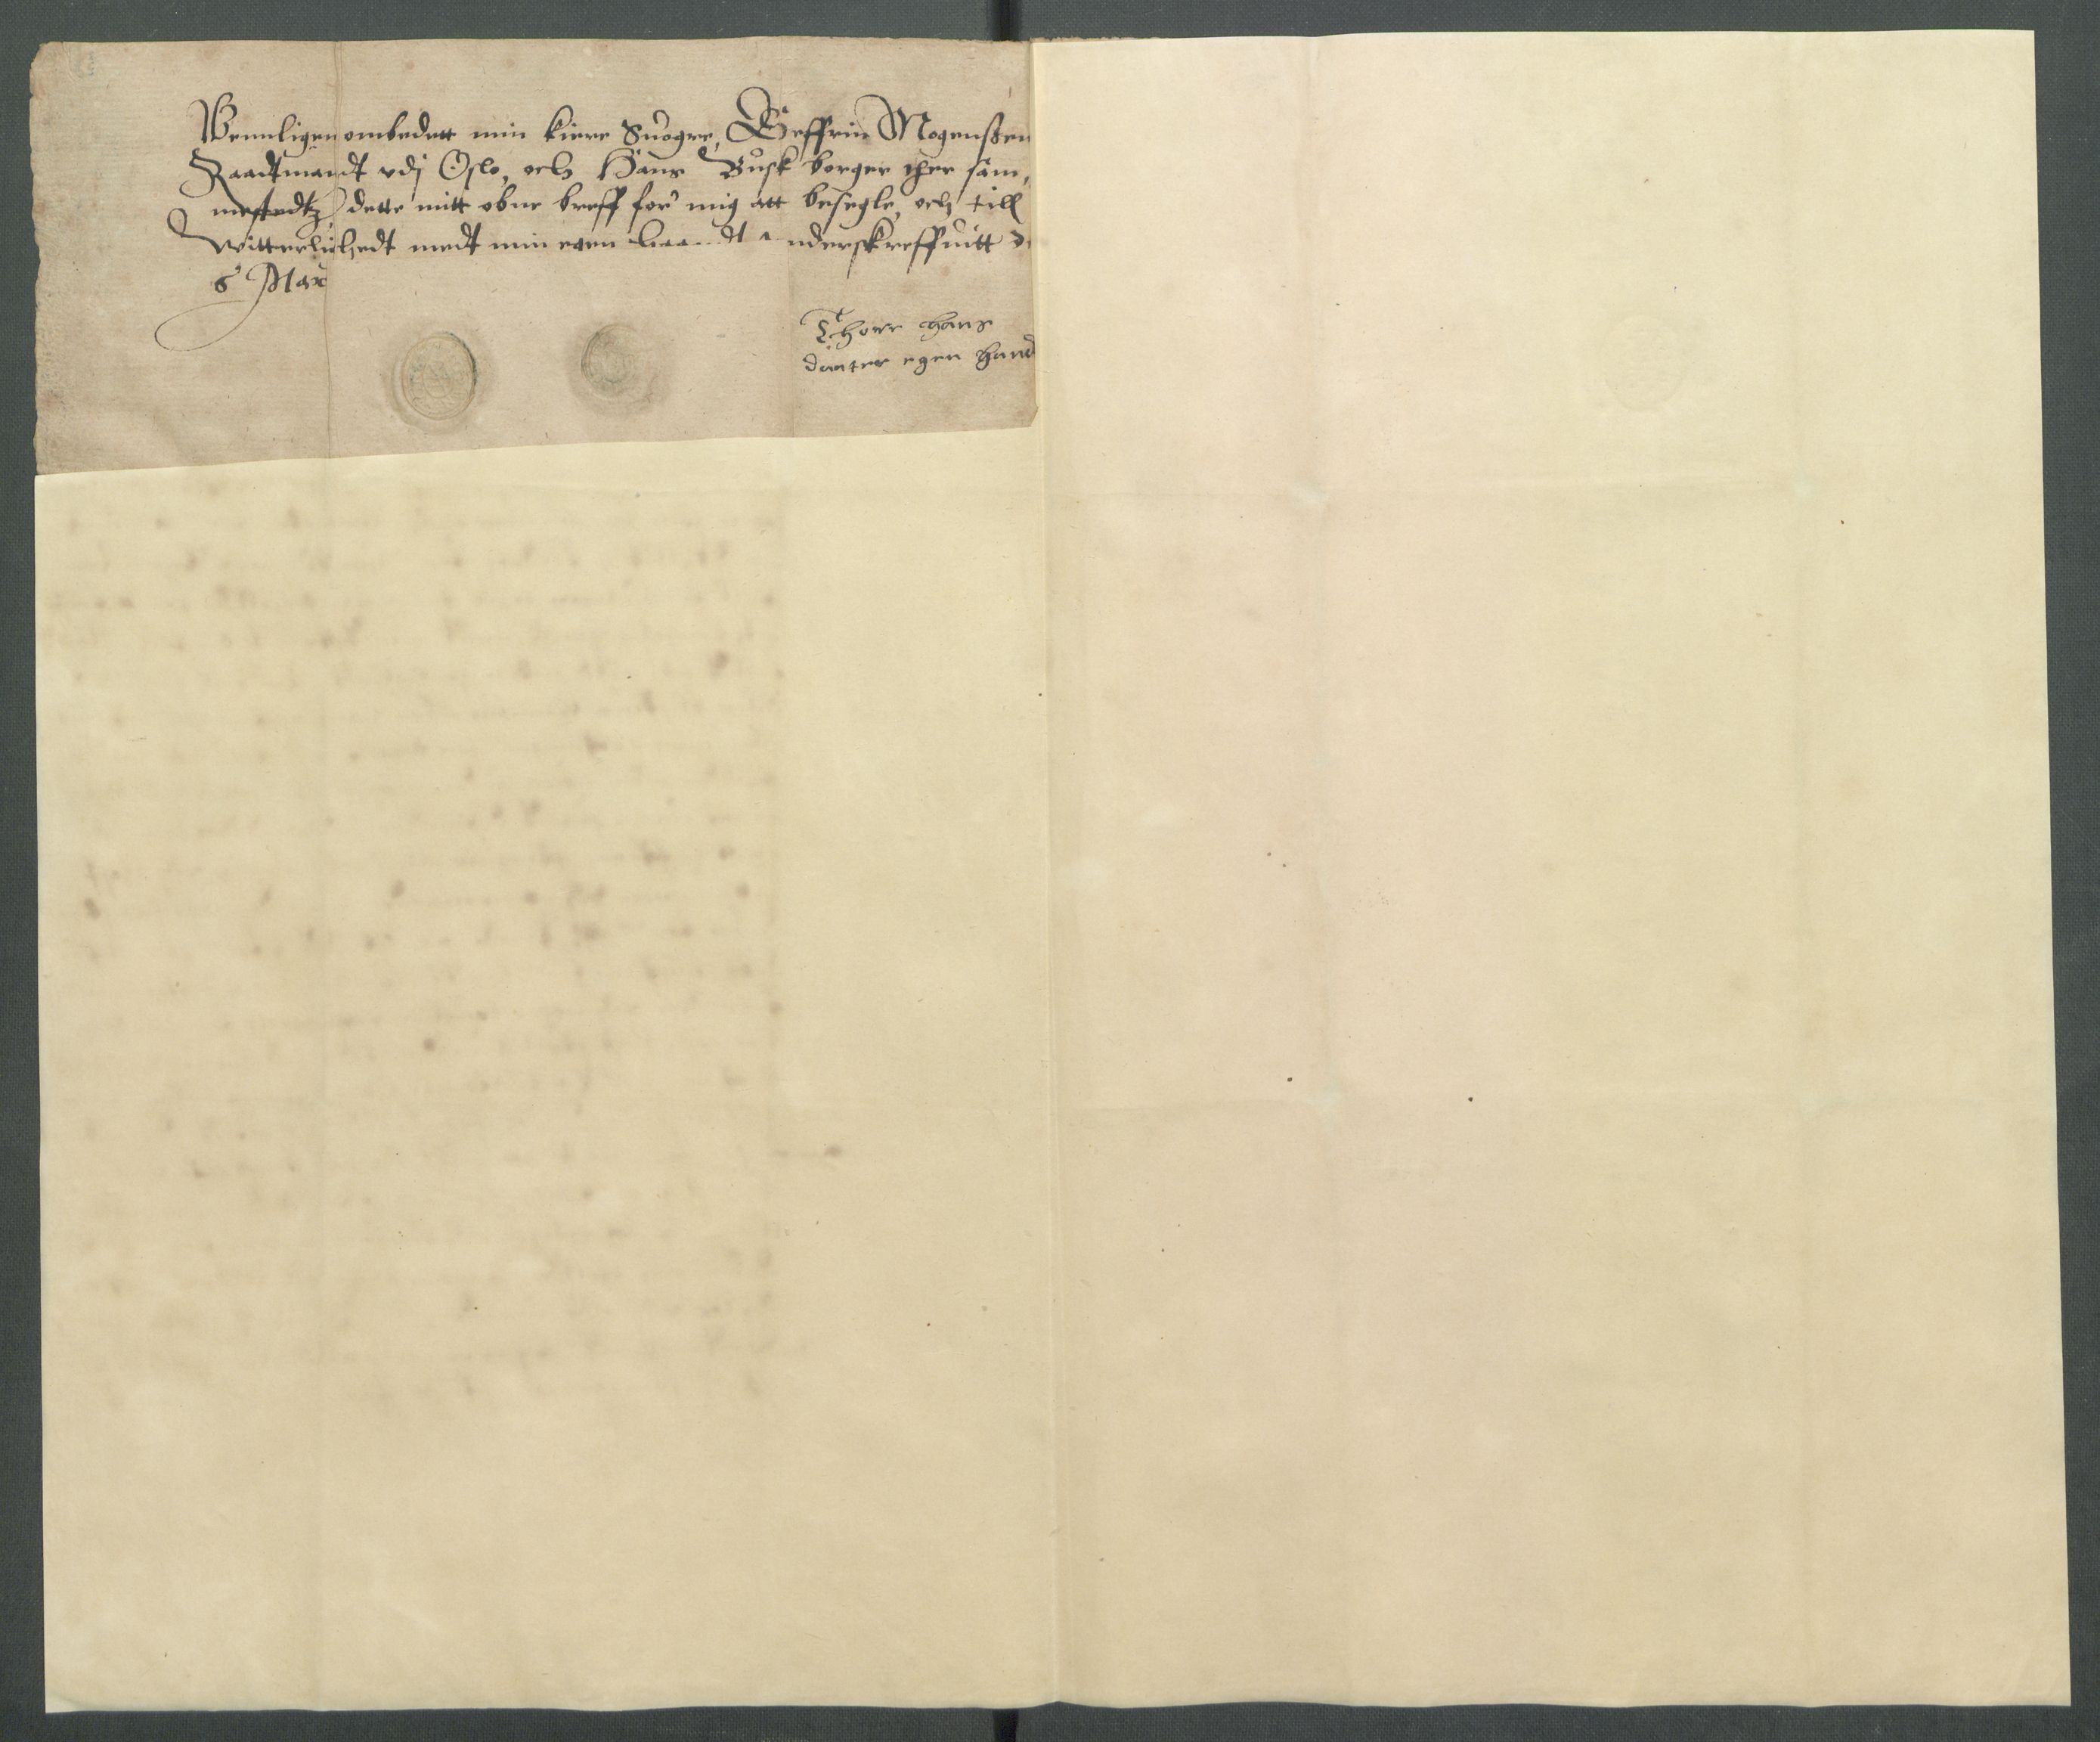 Vennligen ombedett min kiere Suogre, Geffrin Mogenßen
Raadtmandt vdj Oslo, och Hans Busk borger ther sam,
mestedtz, dette mitt obne breff for mig att besegle, och till
witterlighedt medt min egen haandt vnderskreffuitt
6 Maij
Thore hans
daater egen hand